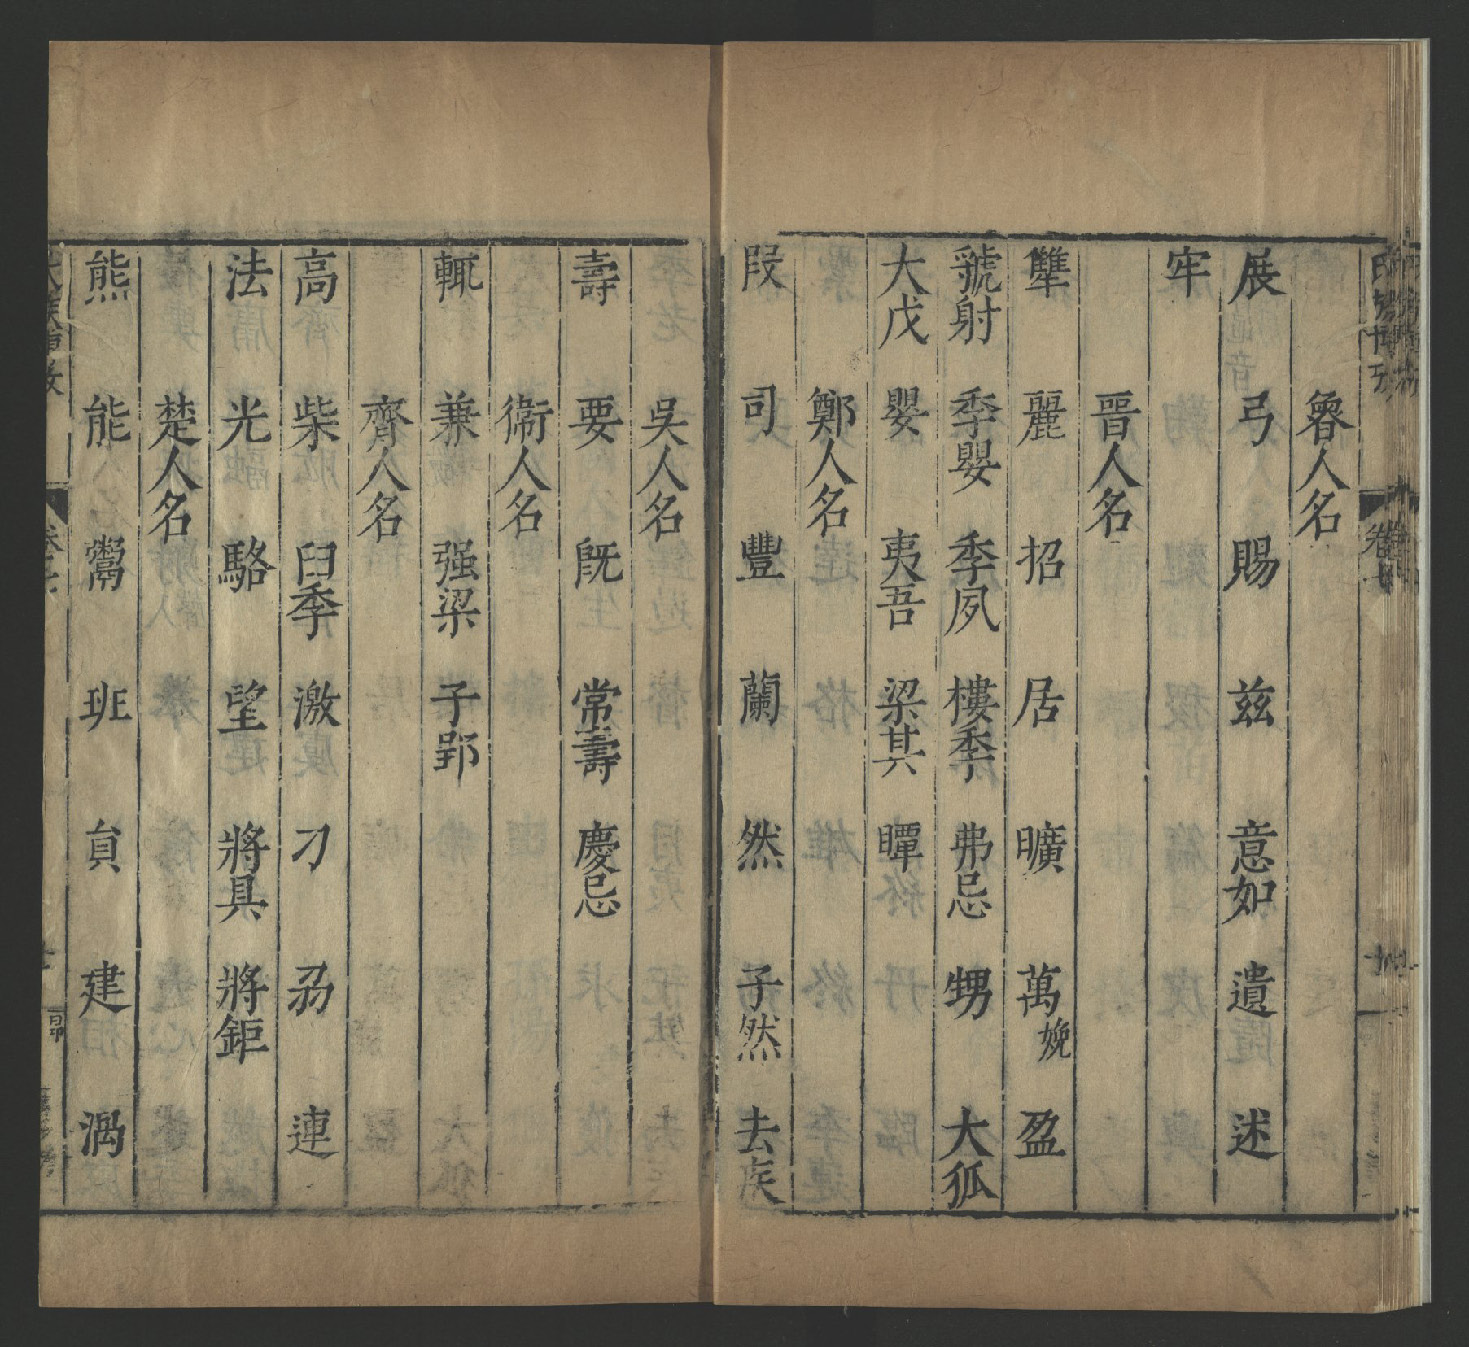 魯人名
展 弓 賜 茲 意如 遺 述
牢
晉人名
犨 麗 招 居 曠 萬 婏 盈
虢射 季嬰 季夙 樓季 弗忌 甥 大狐
大戊 嬰 夷吾 梁其 瞫
鄭人名
段 司 豐 蘭 然 子然 去疾
吳人名
壽 要 旣 常壽 慶忌
衞人名
輒 兼 强梁 子郢
齊人名
高 柴 臼季 激 刁 刕 連
法 光 駱 望 將具 將鉅
楚人名
熊 能 鬻 班 員 建